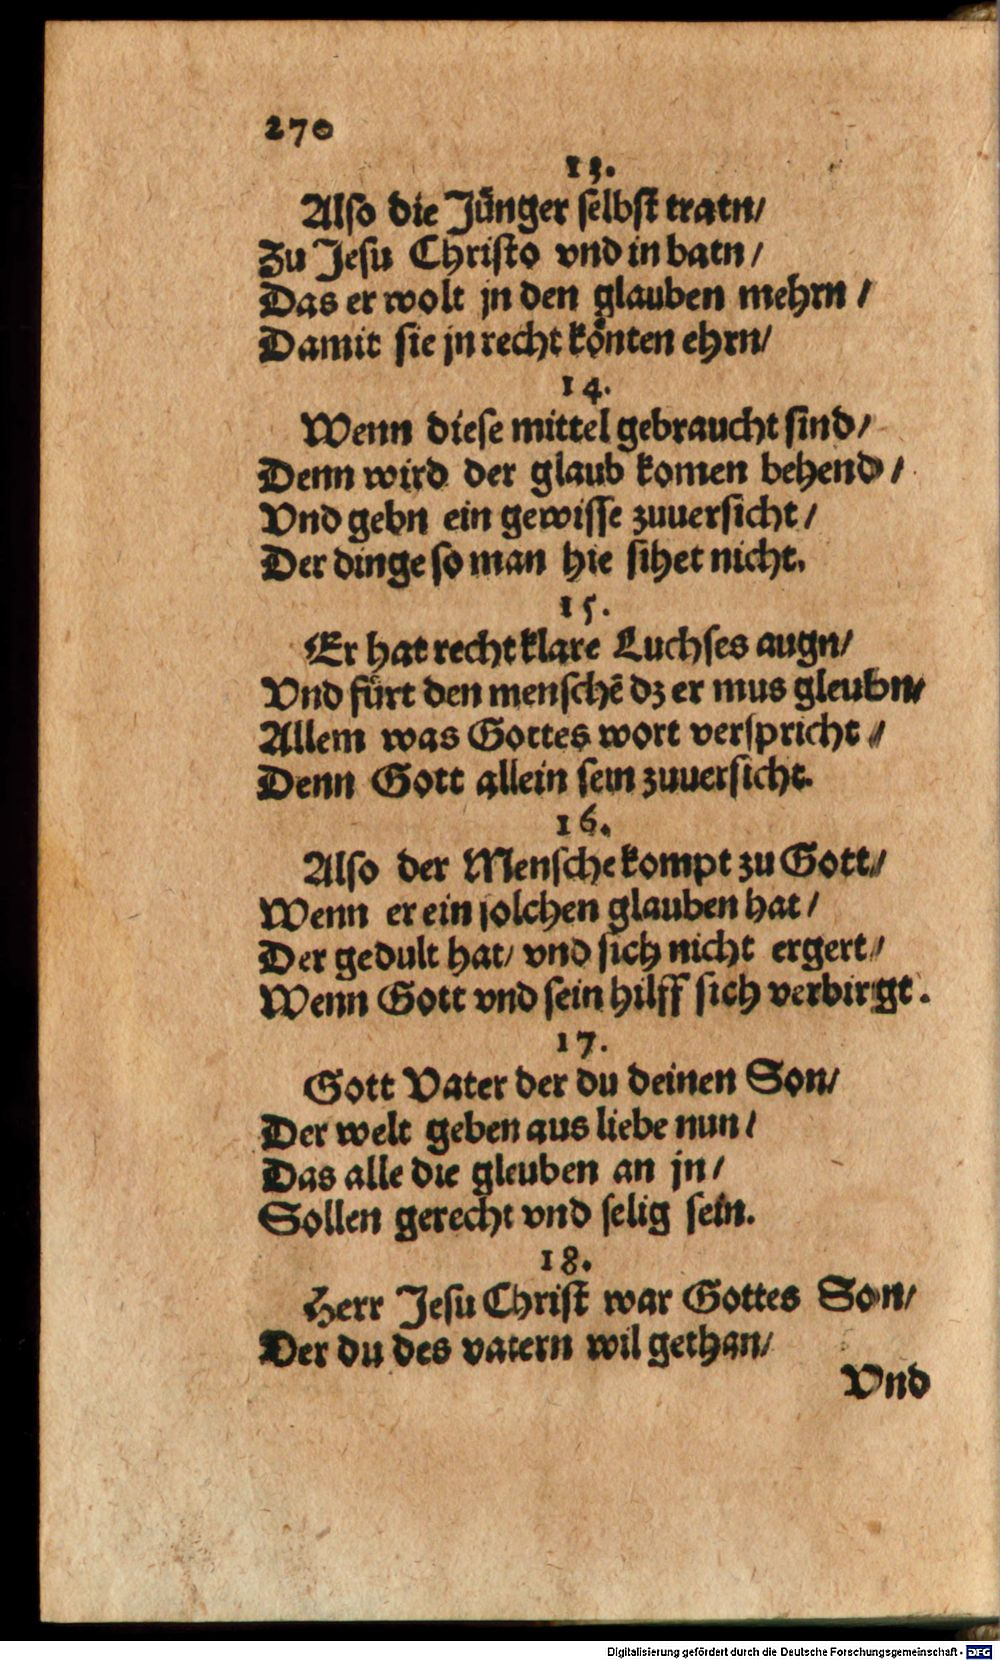 270
13.
Also die Jünger selbst tratn/
Zu Jesu Christo vnd in batn/
Das er wolt jn den glauben mehrn/
Damit sie jn recht könten ehrn/
14.
Wenn diese mittel gebraucht sind/
Denn wird der glaub komen behend/
Vnd gebn ein gewisse zuuersicht/
Der dinge so man hie sihet nicht.
15.
Er hat recht klare Luchses augn/
Vnd fürt den menschē dz er mus gleubn/
Allem was Gottes wort verspricht/
Denn Gott allein sein zuuersicht.
16.
Also der Mensche kompt zu Gott/
Wenn er ein solchen glauben hat/
Der gedult hat/ vnd sich nicht ergert/
Wenn Gott vnd sein hilff sich verbirgt.
17.
Gott Vater der du deinen Son/
Der welt geben aus liebe nun/
Das alle die gleuben an jn/
Sollen gerecht vnd selig sein.
18.
Herr Jesu Christ war Gottes Son/
Der du des vatern wil gethan/
Vnd
Digitalisierung gefördert durch die Deutsche Forschungsgemeinschaft - DFG